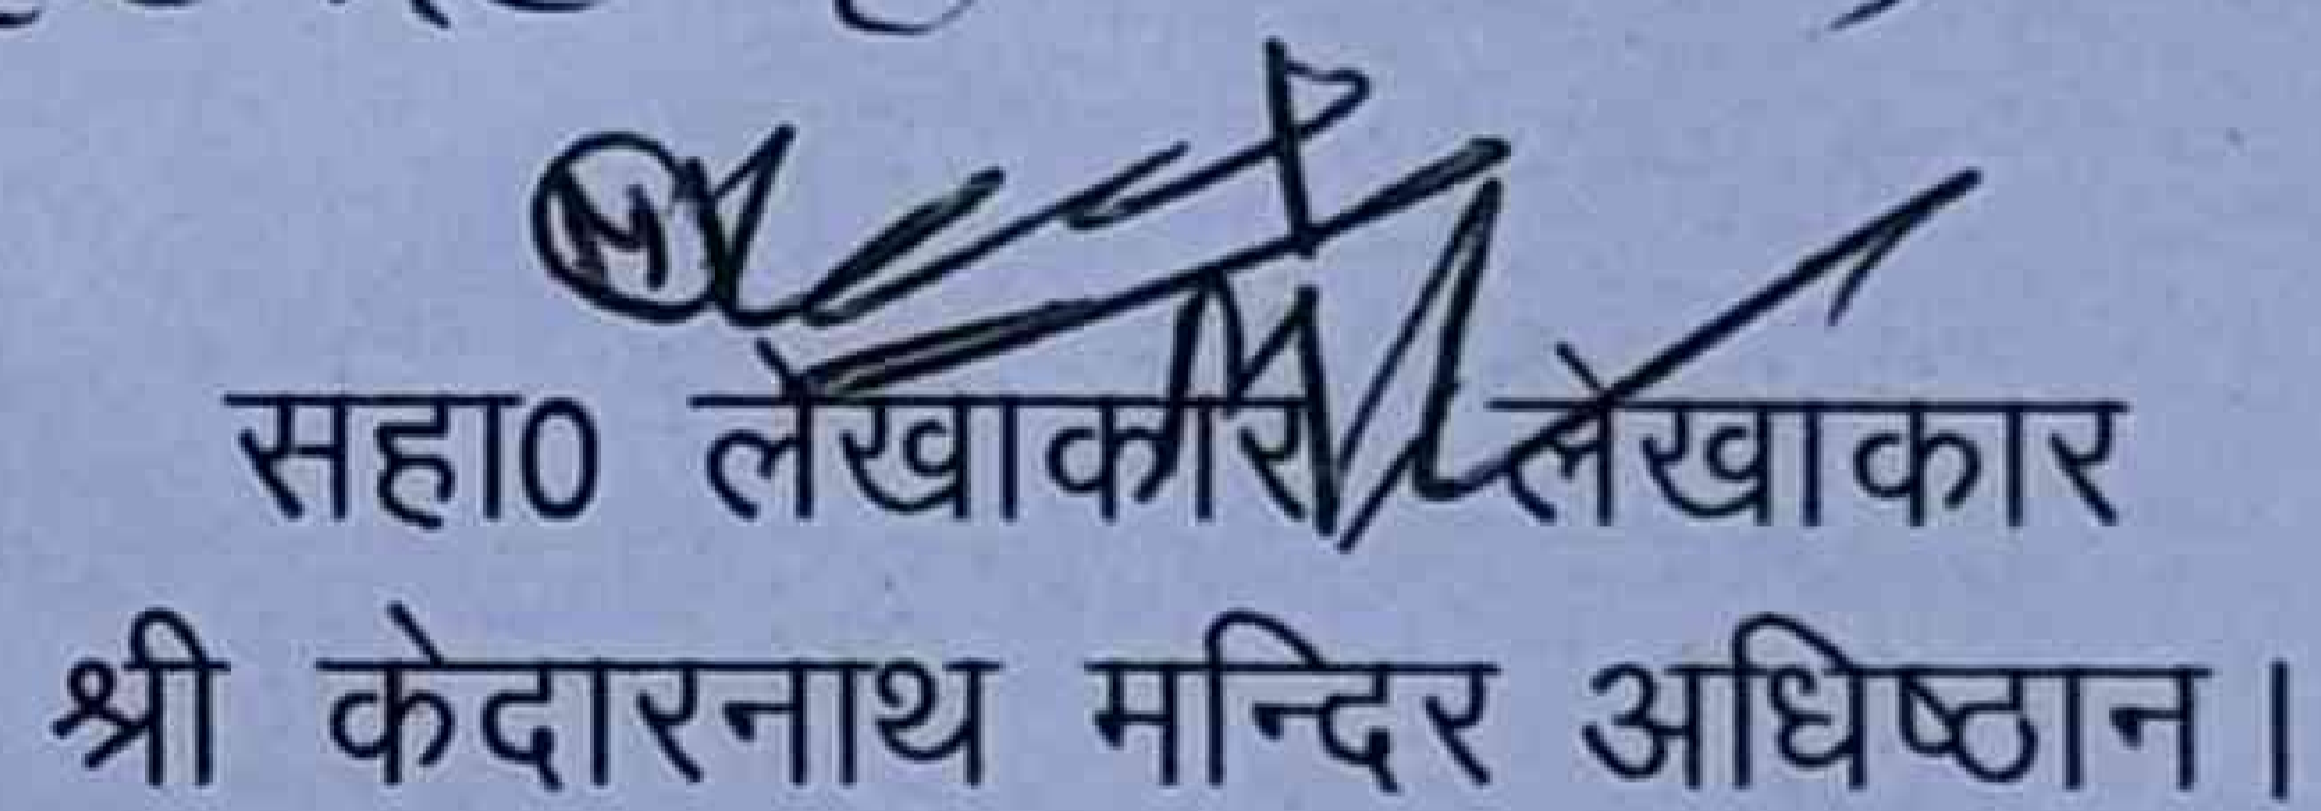 सहा0 लेखाकार लेखाकार
श्री केदारनाथ मन्दिर अधिष्ठान।